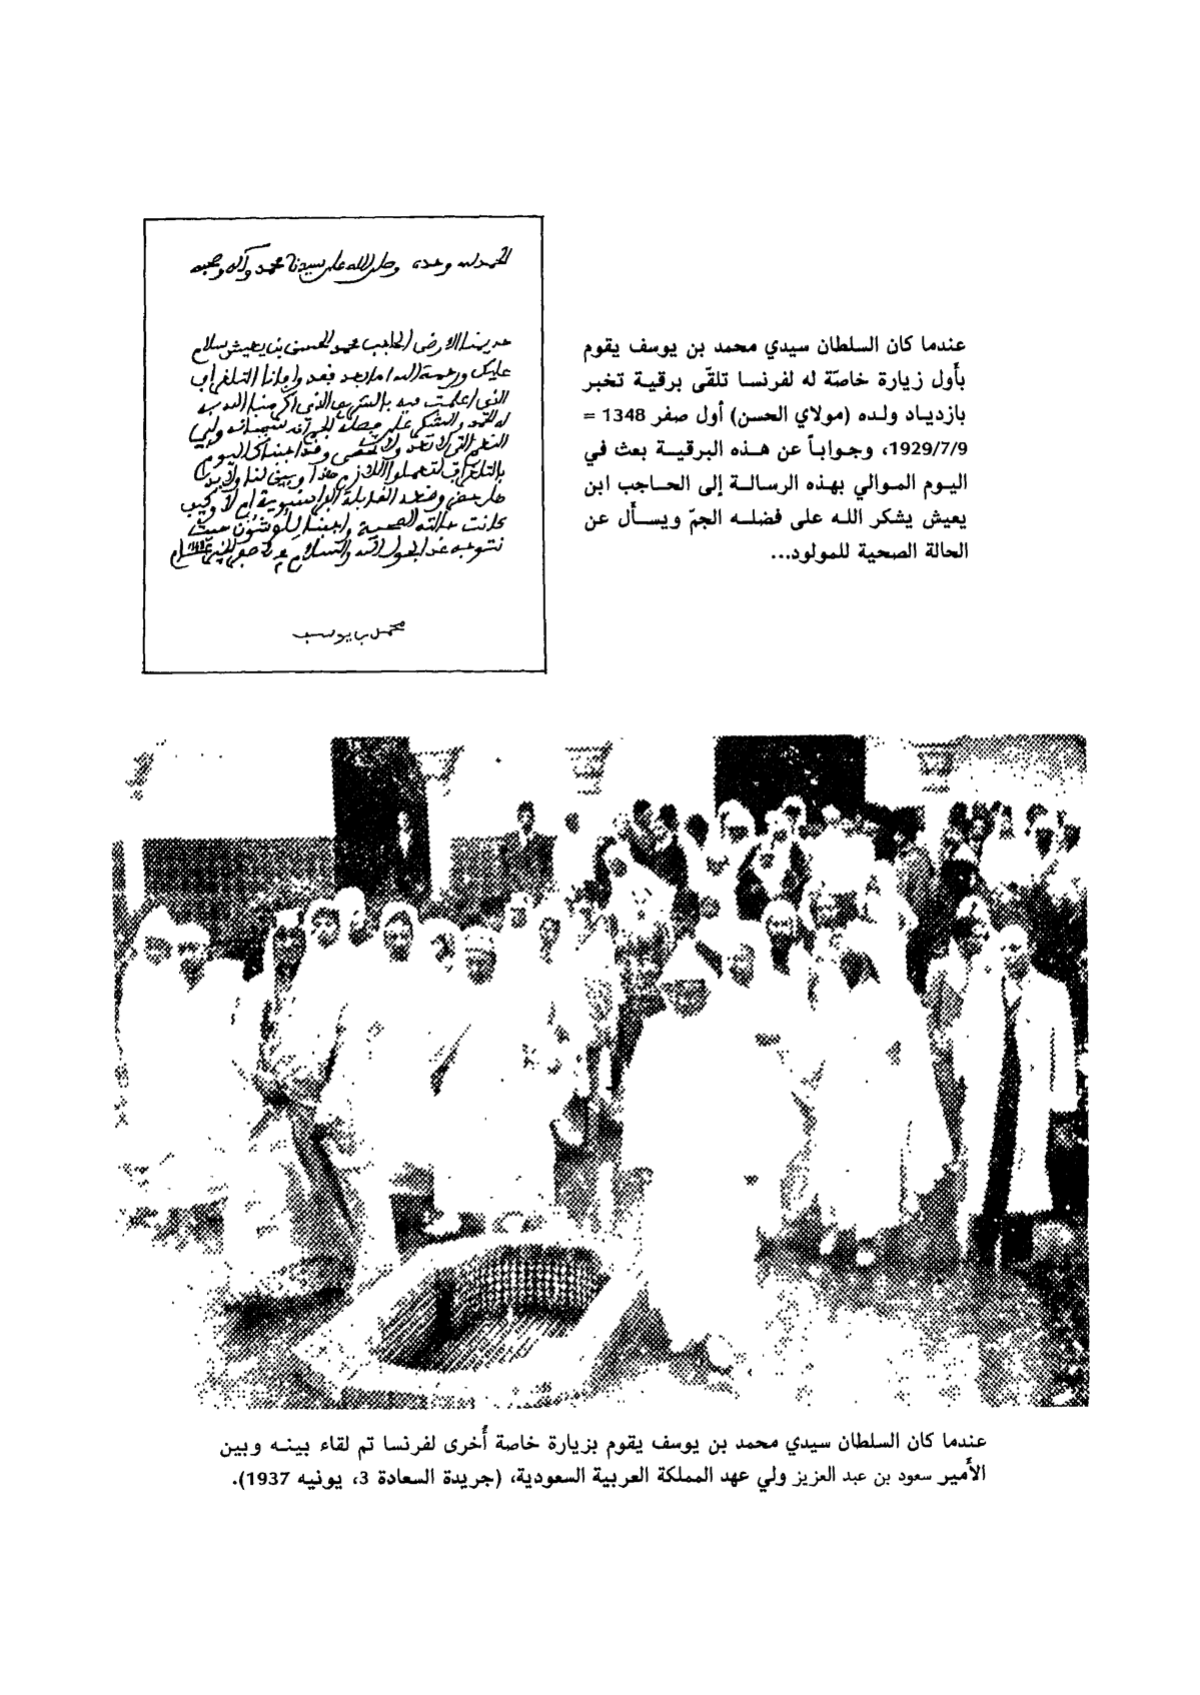 الحمد لله وحده وصلى الله على سيدنا محمد وآله وصحبه
خديمنا الارضى الحاجب محمد الحسن بن يعيش سلام
عليك ورحمة الله اما بعد فقد وافانا التلغراف
الذي اعلمت فيه الذي
لله الحمد والشكر على فضله
النعم التي لا تعد ولا تحصى وقد اليوم
بالتلغراف
هل ام لا وكيف
كانت حالته الصحية حيث
نتوجه غدا بحول الله والسلام في صفر
محمد بن يوسف
عندما كان السلطان سيدي محمد بن يوسف يقوم
بأول زيارة خاصّة له لفرنسا تلقّى برقية تخبر
بازدياد ولده (مولاي الحسن) أول صفر 1348 =
1929/7/9، وجواباً عن هذه البرقية بعث في
اليوم الموالي بهذه الرسالة إلى الحاجب ابن
يعيش يشكر الله على فضله الجمّ ويسأل عن
الحالة الصحية للمولود...
عندما كان السلطان سيدي محمد بن يوسف يقوم بزيارة خاصة أُخرى لفرنسا تم لقاء بينه وبين
الأمير سعود بن عبد العزيز ولي عهد المملكة العربية السعودية، (جريدة السعادة 3، يونيه 1937).